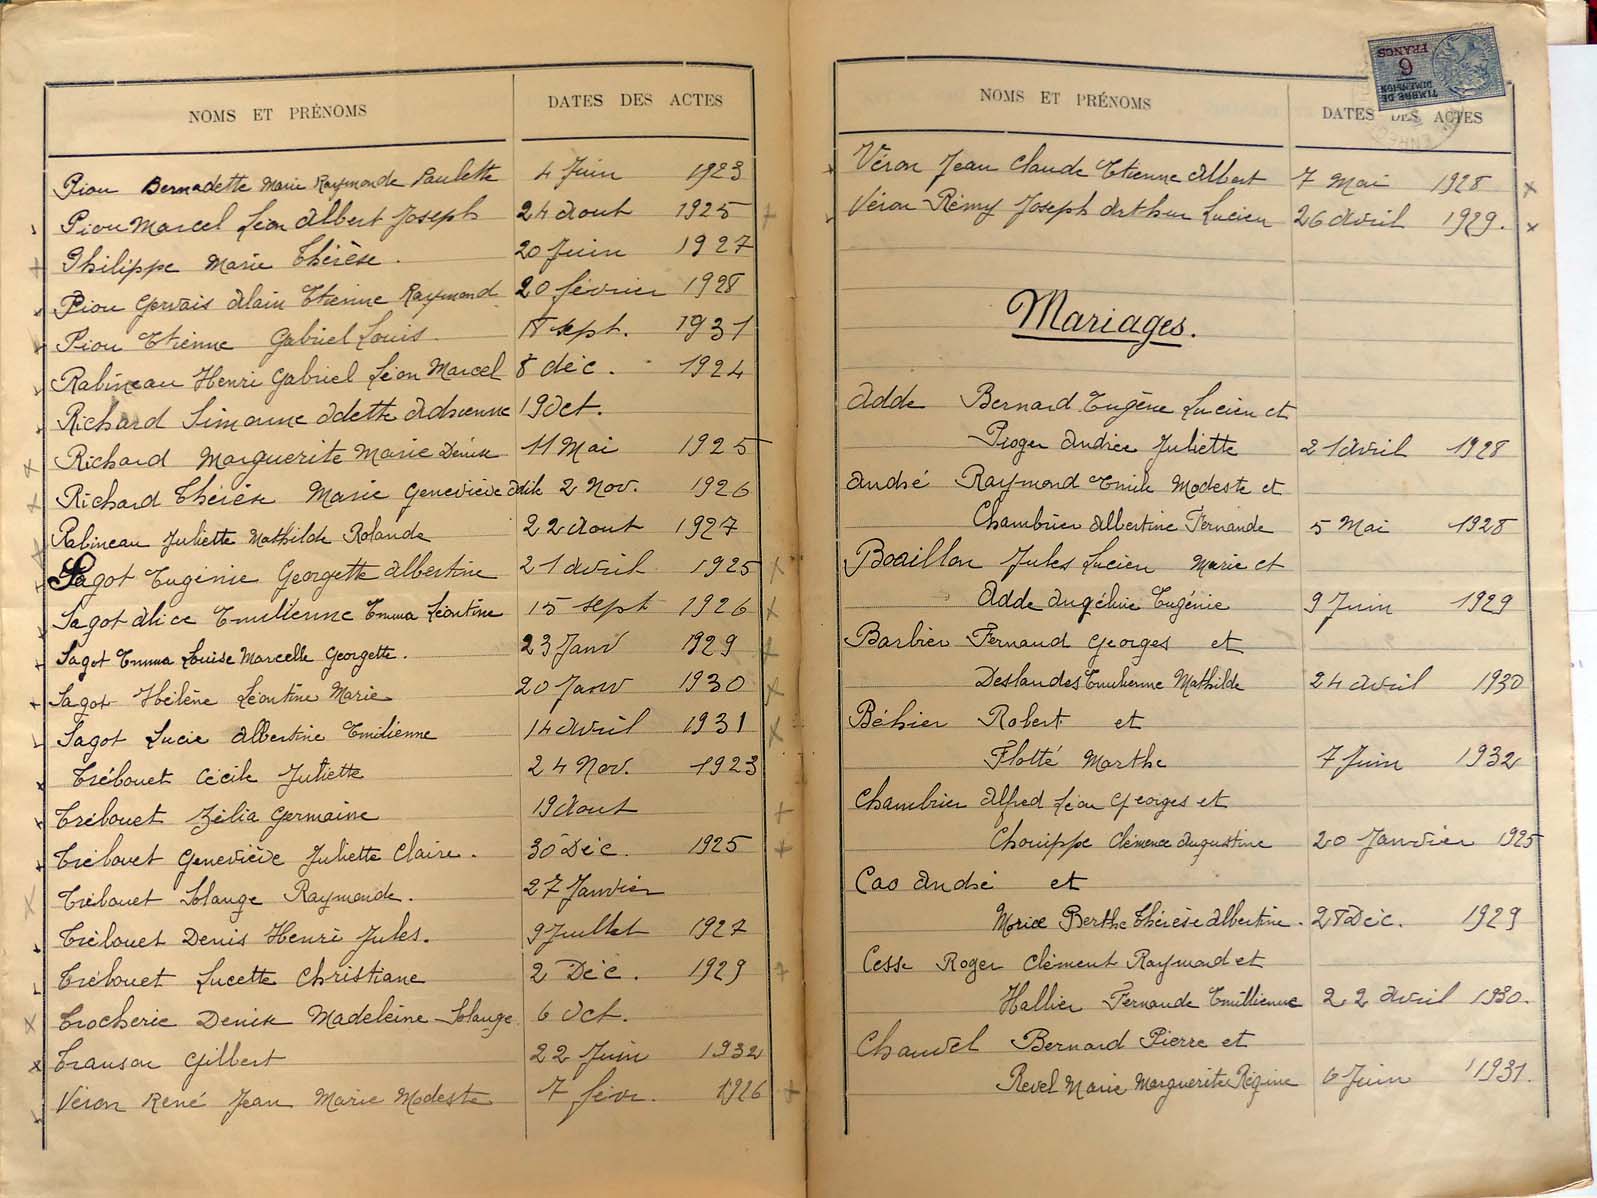 NOMS ET PRÉNOMS DATES DES ACTES
Piou Bernadette Marie Raymonde Paulette 4 Juin 1923
Piou Marcel Léon Albert Joseph 24 Aout 1925
Philippe Marie Thérèse. 20 Juin 1927
Piou Gervais Alain Etienne Raymond 20 février 1928
Piou Etienne Gabriel Louis. 18 sept. 1931
Rabineau Henri Gabriel Léon Marcel 8 déc. 1924
Richard Simonne Odette Adrienne 19 Oct.
Richard Marguerite Marie Denise 11 Mai 1925
Richard Thérèse Marie Geneviève Odile 2 Nov. 1926
Rabineau Juliette Mathilde Rolande 22 Aout 1927
Sagot Eugénie Georgette Albertine 21 Avril 1925
Sagot Alice Emilienne Emma Léontine 15 sept 1926
Sagot Emma Louise Marcelle Georgette. 23 Janv 1929
Sagot Hélène Léontine Marie 20 Janv 1930
Sagot Lucie Albertine Emilienne 14 Avril 1931
Trébouet Cécile Juliette 24 Nov. 1923
Trébouet Zélia Germaine 19 Aout
Trébouet Geneviève Juliette Claire. 30 Déc. 1925
Trébouet Solange Raymonde. 27 Janvier
Trébouet Denis Henri Jules. 9 Juillet 1927
Trébouet Lucette Christiane 2 Déc. 1929
Trocherie Denise Madeleine Solange 6 Oct.
Transon Gilbert 22 Juin 1932
Véron René Jean Marie Modeste 7 févr. 1926
TIMBRE DE DIMENSION
6 FRANCS
NOMS ET PRÉNOMS DATES DES ACTES
Véron Jean Claude Etienne Albert 7 Mai 1928
Véron Rémy Joseph Arthur Lucien 26 Avril 1929.
Mariages.
Adde Bernard Eugène Lucien et
Proger Andrée Juliette 21 Avril 1928
André Raymond Emile Modeste et
Chambrier Albertine Fernande 5 Mai 1928
Boaillon Jules Lucien Marie et
Adde Angéline Eugénie 9 Juin 1929
Barbier Fernand Georges et
Deslandes Emilienne Mathilde 24 Avril 1930
Béhier Robert et
Flotté Marthe 7 Juin 1932
Chambrier Alfred Léon Georges et
Chouippe Clémence Augustine 20 Janvier 1925
Cao André et
Morice Berthe Thérèse Albertine. 28 Déc. 1929
Cesse Roger Clément Raymond et
Hallier Fernande Emillienne 22 Avril 1930.
Chauvel Bernard Pierre et
Revel Marie Marguerite Régine 6 Juin 1931.